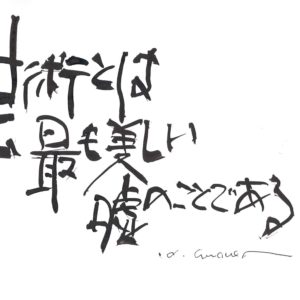 術とは
最も美しい
嘘のことである